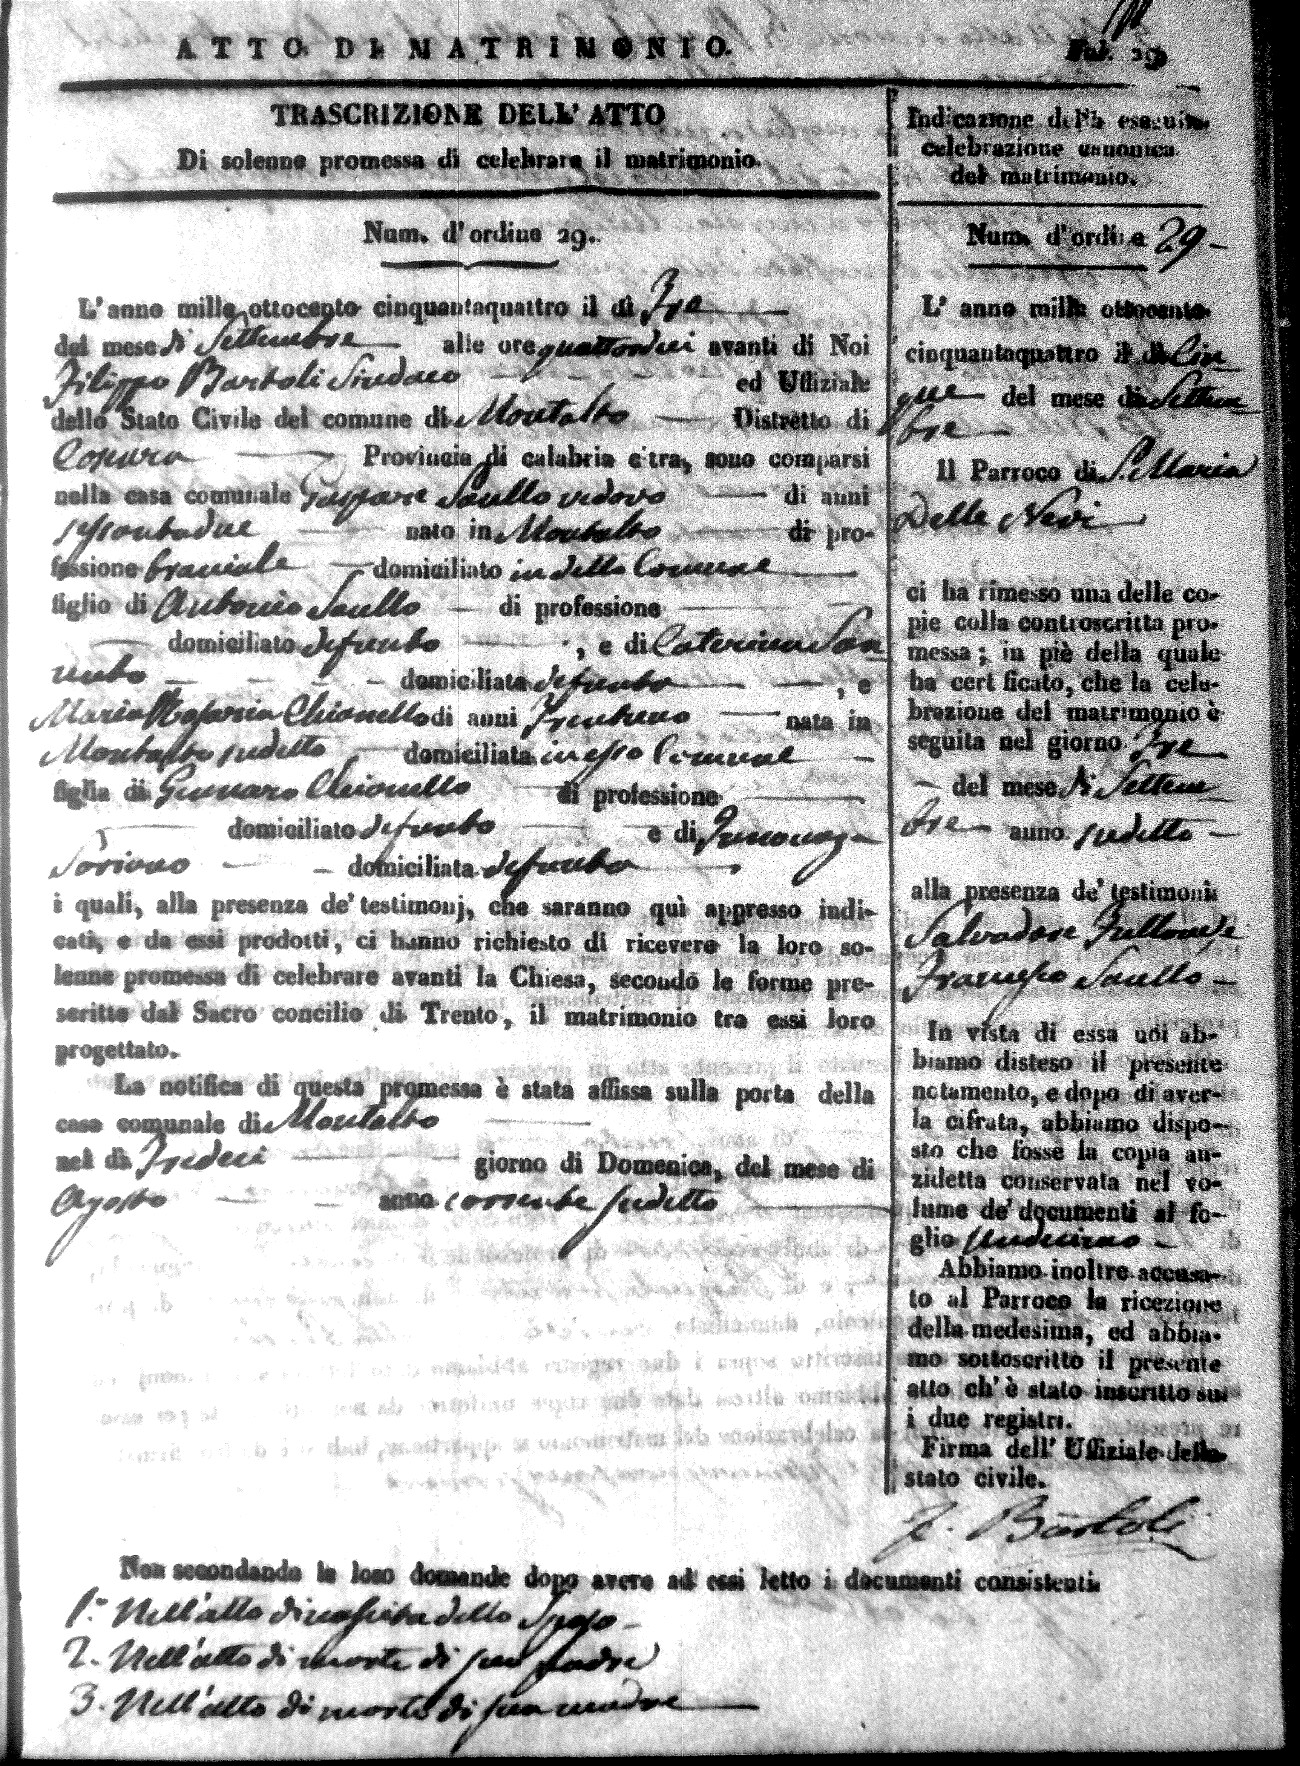 ATTO DI MATRIMONIO.
Fol. 29
TRASCRIZIONE DELL' ATTO
Di solenne promessa di celebrare il matrimonio.
Num. d'ordine 29.
L'anno mille ottocento cinquantaquattro il dì Tre
del mese di Settembre alle ore quattordici avanti di Noi
Filippo Bartoli Sindaco ed Uffiziale
dello Stato Civile del comune di Montalto Distretto di
Cosenza Provincia di calabria citra, sono comparsi
nella casa comunale Gaspare Saullo vedovo di anni
sessantadue nato in Montalto di pro-
fessione bracciale domiciliato in detto Comune
figlio di Antonio Saullo di professione
domiciliato defunto , e di Caterina San
domiciliata defunta , e
Maria Chianello di anni Trentuno nata in
Montalto sudetto domiciliata in esso Comune
figlia di Gennaro Chianello di professione
domiciliato defunto e di
Soriano domiciliata defunta
i quali, alla presenza de' testimonj, che saranno quì appresso indi-
cati, e da essi prodotti, ci hanno richiesto di ricevere la loro so-
lenne promessa di celebrare avanti la Chiesa, secondo le forme pre-
scritte dal Sacro concilio di Trento, il matrimonio tra essi loro
progettato.
La notifica di questa promessa è stata affissa sulla porta della
casa comunale di Montalto
nel dì Tredeci giorno di Domenica, del mese di
Agosto anno corrente sudetto
Indicazione della eseguita
celebrazione canonica
del matrimonio.
Num. d'ordine 29
L' anno mille ottocento
cinquantaquattro il dì Cin
que del mese di Settem
bre
Il Parroco di S. Maria
Delle Nevi
ci ha rimesso una delle co-
pie colla controscritta pro-
messa; in piè della quale
ha certificato, che la cele-
brazione del matrimonio è
seguita nel giorno Tre
del mese di Settem
bre anno sudetto
alla presenza de' testimoni
Salvadore
Francesco Saullo
In vista di essa noi ab-
biamo disteso il presente
notamento, e dopo di aver-
la cifrata, abbiamo dispo-
sto che fosse la copia an-
zidetta conservata nel vo-
lume de' documenti al fo-
glio
Abbiamo inoltre accusa-
to al Parroco la ricezione
della medesima, ed abbia-
mo sottoscritto il presente
atto ch' è stato inscritto sui
i due registri.
Firma dell' Uffiziale dello
stato civile.
F. Bartoli
Non secondando le loro domande dopo avere ad essi letto i documenti consistenti
1.° Nell'atto di nascita dello Sposo
2. Nell'atto di morte di suo padre
3. Nell'atto di morte di sua madre